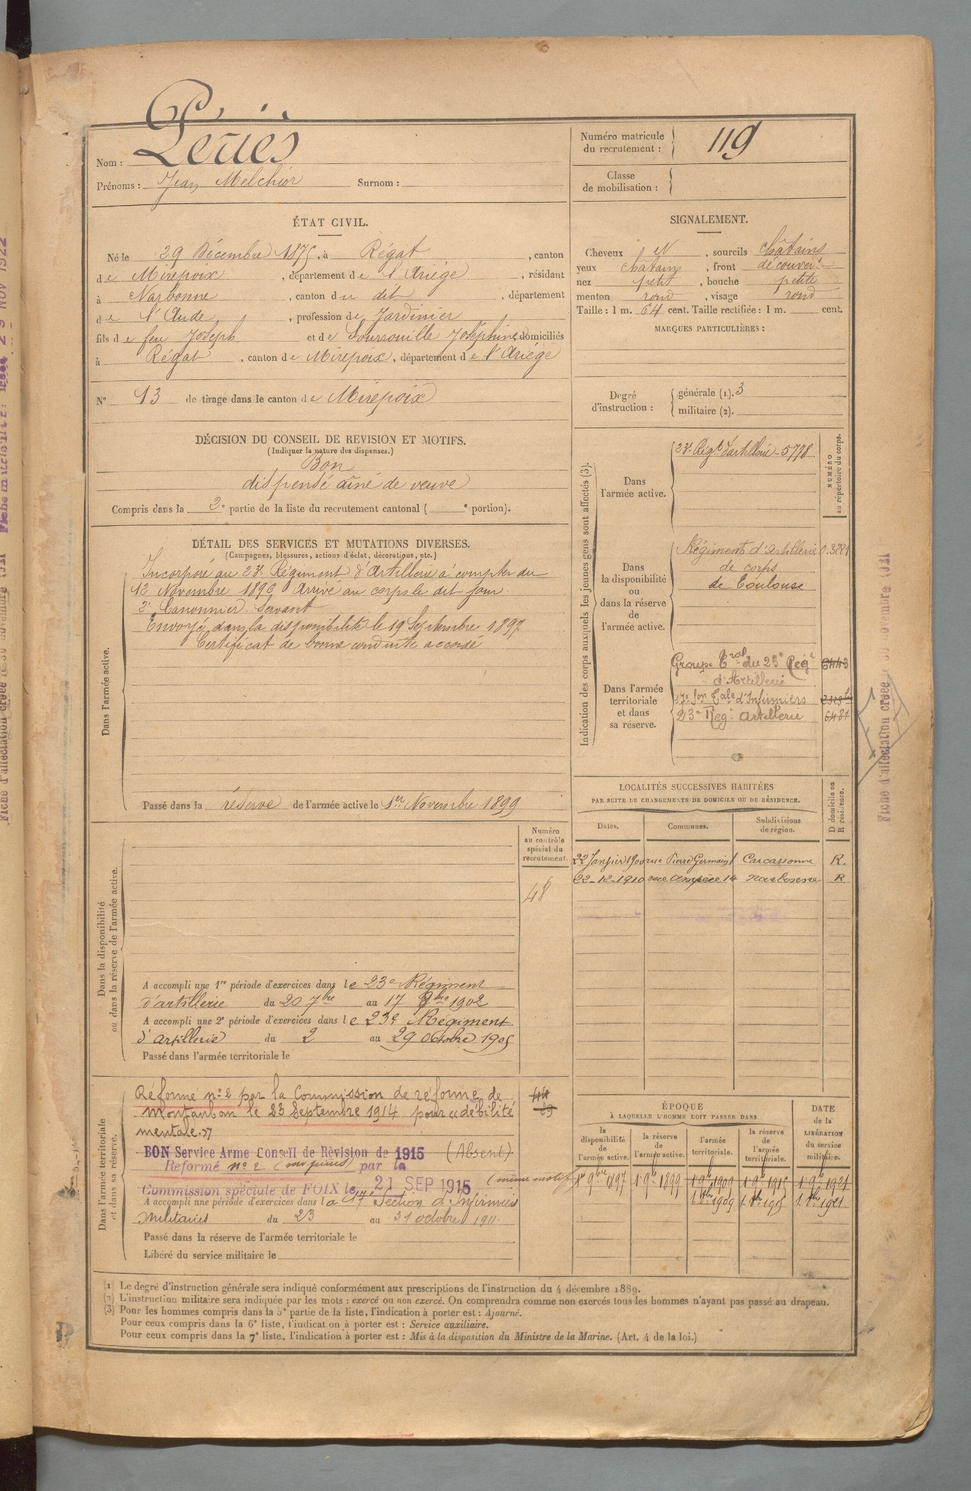 Nom : Périès
Prénoms : Jean Melchior Surnom :
Numéro matricule du recrutement : 119
Classe de mobilisation :
ÉTAT CIVIL.
Né le 29 Décembre 1875, à Régat, canton
de Mirepoix, département de l'Ariège, résidant
à Narbonne, canton du dit, département
de l'Aude, profession de Jardinier
fils de feu Joseph et de Joséphine, domiciliés
à Régat, canton de Mirepoix, département de l'Ariège
N° 13 de tirage dans le canton de Mirepoix
SIGNALEMENT.
Cheveux, sourcils châtains
yeux châtains, front découvert
nez petit, bouche petite
menton rond, visage rond
Taille : 1 m. 64 cent. Taille rectifiée : 1 m. cent.
MARQUES PARTICULIÈRES :
Degré d'instruction : générale (1). 3
militaire (2).
DÉCISION DU CONSEIL DE REVISION ET MOTIFS.
(Indiquer la nature des dispenses.)
Bon
dispensé aîné de veuve
Compris dans la 2e partie de la liste du recrutement cantonal ( e portion).
DÉTAIL DES SERVICES ET MUTATIONS DIVERSES.
(Campagnes, blessures, actions d'éclat, décorations, etc.)
Dans l'armée active.
Incorporé au 23e Régiment d'Artillerie à compter du
12 Novembre 1896 Arrivé au corps le dit jour
2e Canonnier Servant
Envoyé dans la disponibilité le 19 Septembre 1897
Certificat de bonne conduite accordé
Passé dans la réserve de l'armée active le 1er Novembre 1899
Indication des corps auxquels les jeunes gens sont affectés (3).
NUMÉRO au répertoire du corps.
Dans l'armée active.
23e Régt d'artillerie - 5778
Dans la disponibilité ou dans la réserve de l'armée active.
Régiment d'Artillerie
de corps
de Toulouse
Dans l'armée territoriale et dans sa réserve.
Groupe Tal du 23e Régt
d'Artillerie
17e Son Tale d'Infirmiers
23e Rég. Artillerie
LOCALITÉS SUCCESSIVES HABITÉES
PAR SUITE DE CHANGEMENTS DE DOMICILE OU DE RÉSIDENCE.
Dates. Communes. Subdivisions de région. D domicile ou R résidence.
22 Janvier 1900 rue Pierre Germain 1 Carcassonne R.
22-12-1910 rue Ampère 14 Narbonne R
Numéro au contrôle spécial du recrutement.
48
Dans la disponibilité ou dans la réserve de l'armée active.
A accompli une 1re période d'exercices dans le 23e Régiment
d'artillerie du 20 7bre au 17 8bre 1902
A accompli une 2e période d'exercices dans le 23e Régiment
d'artillerie du 2 au 29 octobre 1905
Passé dans l'armée territoriale le
Dans l'armée territoriale et dans sa réserve.
Réformé n° 2 par la Commission de réforme de
Montauban le 23 Septembre 1914 pour débilité
mentale.
BON Service Armé Conseil de Révision de 1915 (Absent)
Reformé n° 2 par la
Commission spéciale de FOIX le 21 SEP 1915 (même motif)
A accompli une période d'exercices dans la 17e Section d'Infirmiers
Militaires du 23 au 31 octobre 1911
Passé dans la réserve de l'armée territoriale le
Libéré du service militaire le
ÉPOQUE
À LAQUELLE L'HOMME DOIT PASSER DANS
la disponibilité de l'armée active. la réserve de l'armée active. l'armée territoriale. la réserve de l'armée territoriale.
DATE de la LIBÉRATION du service militaire.
1er 9bre 1897 1er 9bre 1899 1er 9bre 1909 1er 9bre 1915 1er 9bre 1921
(1) Le degré d'instruction générale sera indiqué conformément aux prescriptions de l'instruction du 4 décembre 1889.
(2) L'instruction militaire sera indiquée par les mots : exercé ou non exercé. On comprendra comme non exercés tous les hommes n'ayant pas passé au drapeau.
(3) Pour les hommes compris dans la 5e partie de la liste, l'indication à porter est : Ajourné.
Pour ceux compris dans la 6e liste, l'indication à porter est : Service auxiliaire.
Pour ceux compris dans la 7e liste, l'indication à porter est : Mis à la disposition du Ministre de la Marine. (Art. 4 de la loi.)